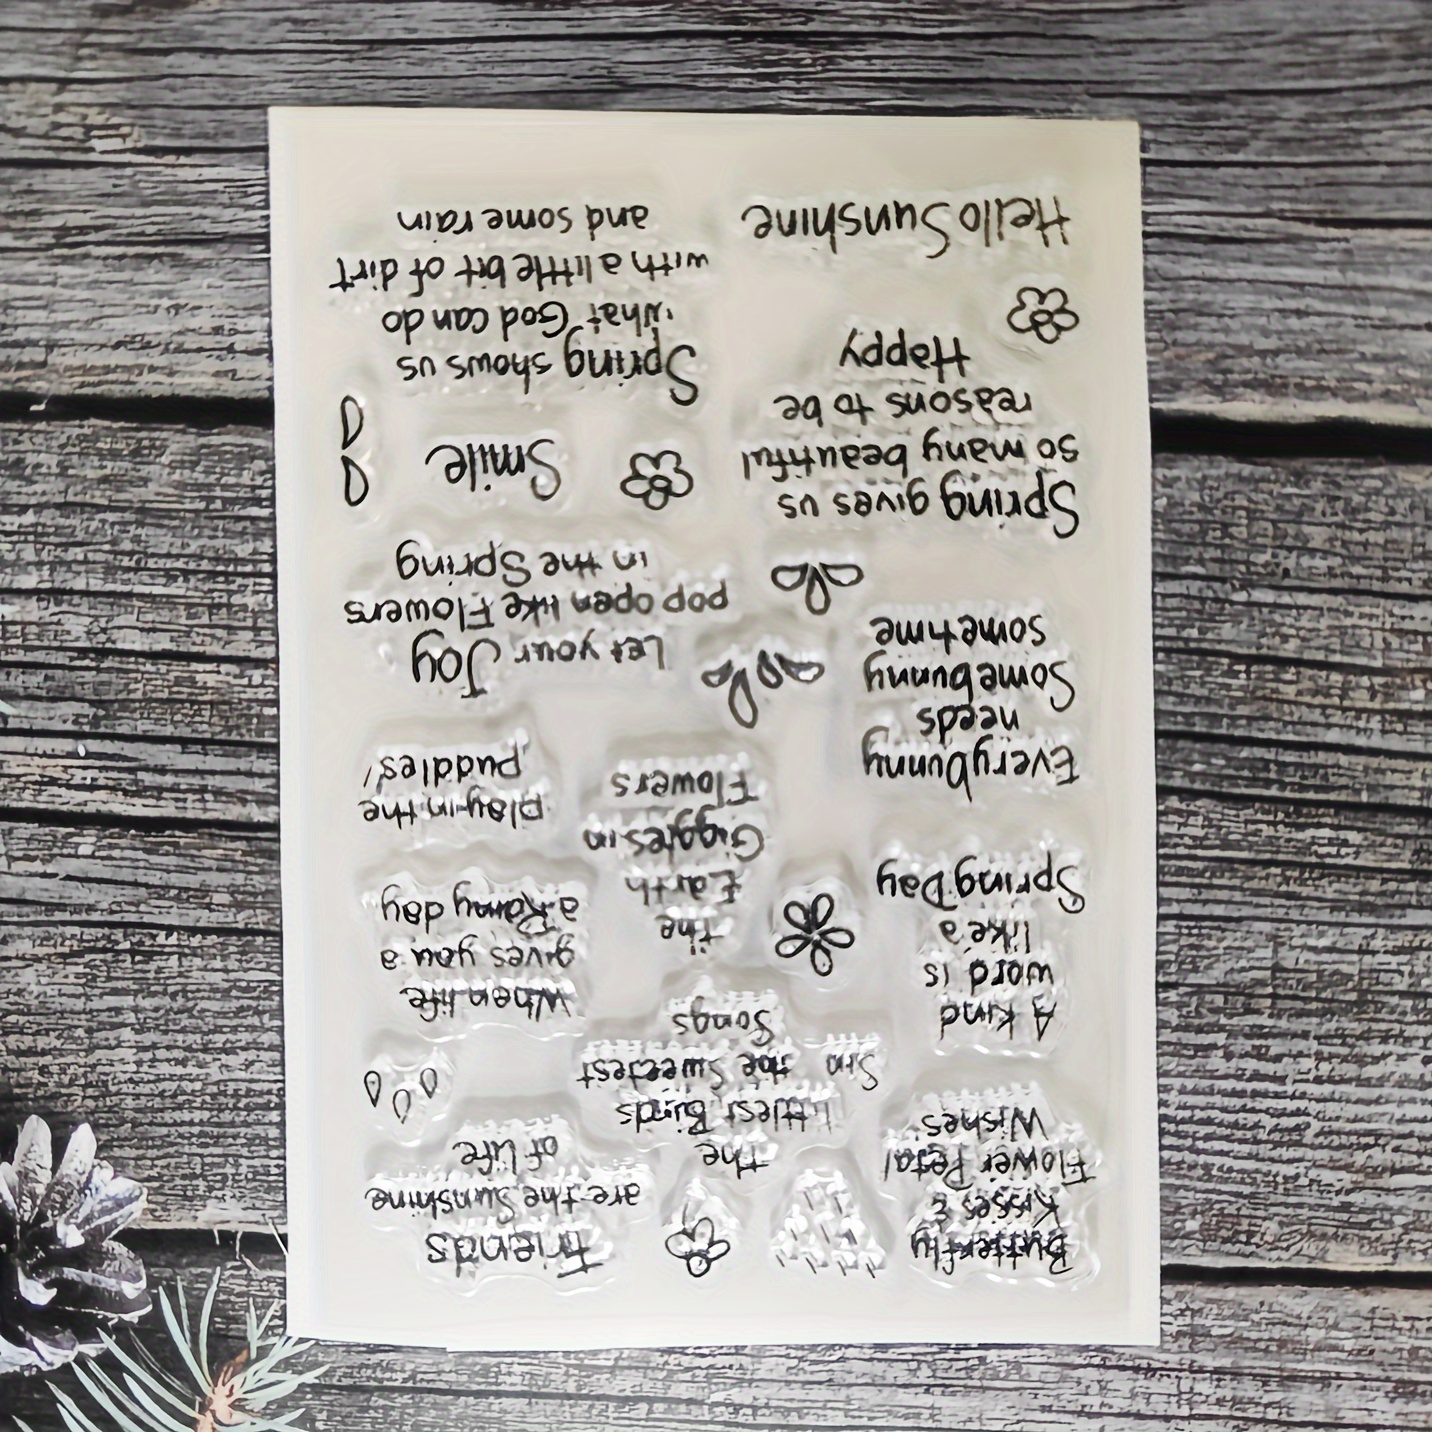 Friends
are the Sunshine
of life
Butterfly
Kisses &
Flower Petal
Wishes
the
littlest Birds
Sin the Sweetest
Songs
A kind
word is
like a
Spring Day
When life
gives you a
a Rainy day
play in the
puddles!
the
Earth
Giggles in
Flowers
Everybunny
needs
Somebunny
sometime
Let your Joy
pop open like Flowers
in the Spring
Spring gives us
so many beautiful
reasons to be
Happy
Smile
Spring shows us
what God can do
with a little bit of dirt
and some rain
Hello Sunshine